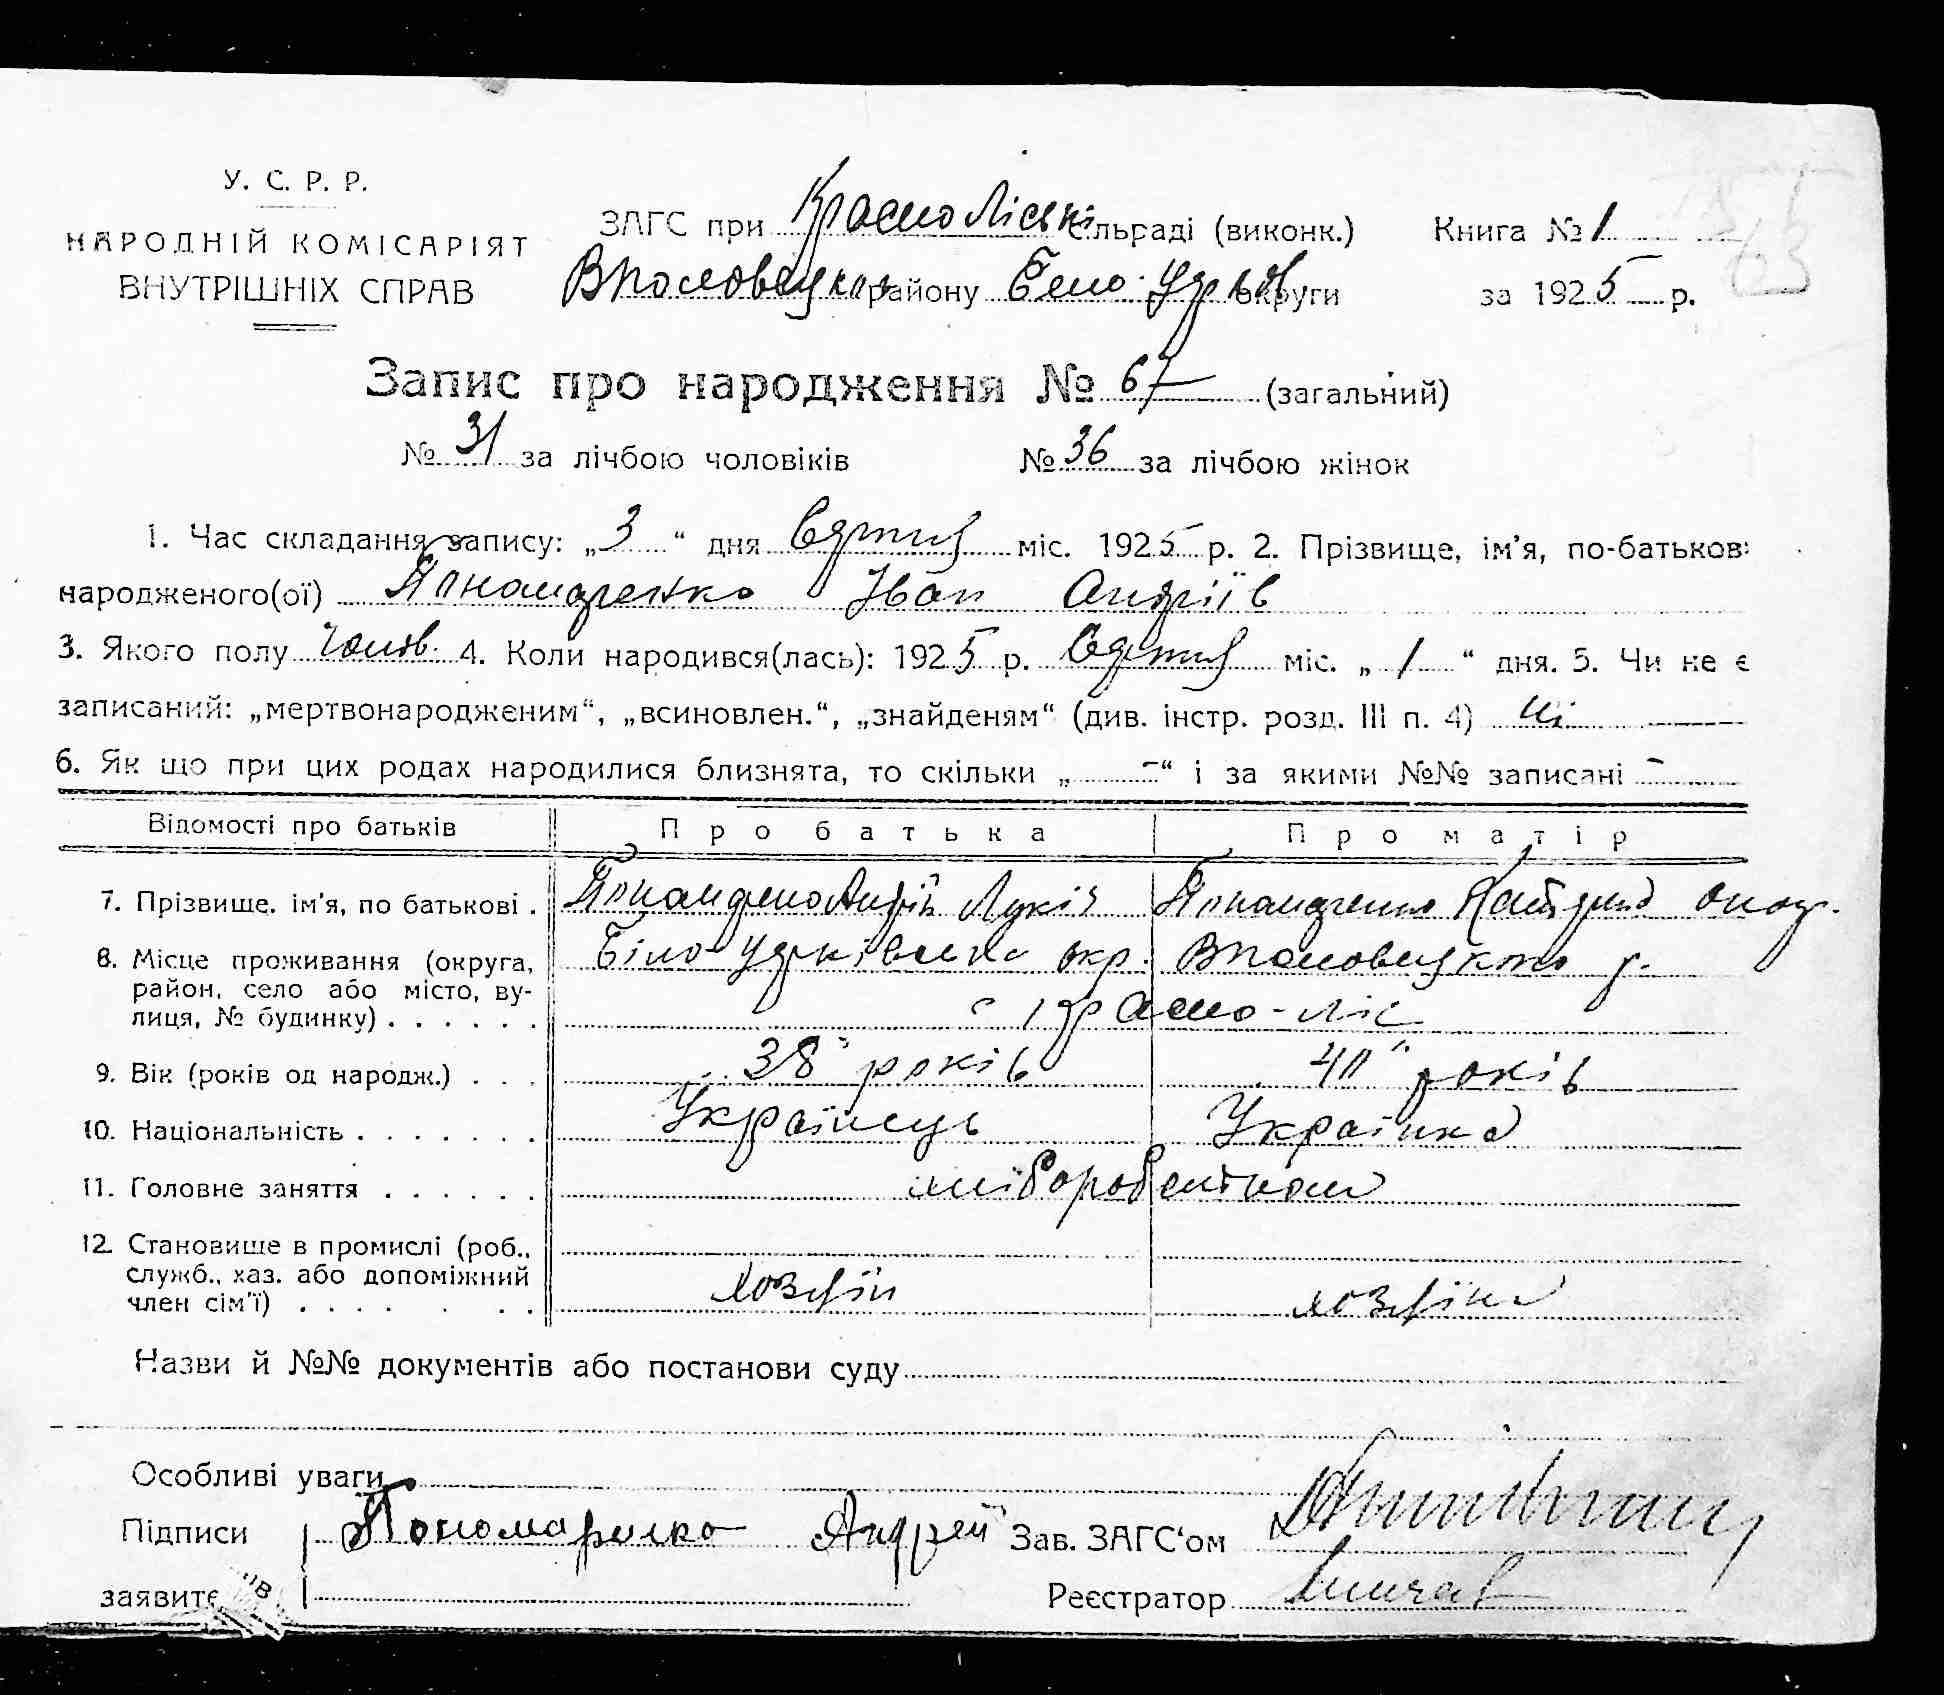 У. С. Р. Р.
НАРОДНІЙ КОМІСАРІЯТ
ВНУТРІШНІХ СПРАВ
ЗАГС при Красноліські сільраді (виконк.) Книга № 1
району округи за 1925 р.
Запис про народження № 67 (загальний)
№ 31 за лічбою чоловіків № 36 за лічбою жінок
1. Час складання запису: „3“ дня Серпня міс. 1925 р. 2. Прізвище, ім’я, по-батькові
народженого(ої) Пономаренко Іван Андріїв
3. Якого полу Чолов. 4. Коли народився(лась): 1925 р. Серпня міс. „1“ дня. 5. Чи не є
записаний: „мертвонародженим“, „всиновлен.“, „знайденям“ (див. інстр. розд. III п. 4) Ні
6. Як що при цих родах народилися близнята, то скільки „ - “ і за якими №№ записані -
Відомості про батьків Про батька Про матір
7. Прізвище, ім’я, по батькові . Андрій Лукіч
8. Місце проживання (округа, район, село або місто, вулиця, № будинку) . . . . . . Біло-Церківська окр. р.
с Красно-Ліс
9. Вік (років од народж.) . . . 38 років 40 років
10. Національність . . . . . . . Українець Українка
11. Головне заняття . . . . . .
12. Становище в промислі (роб., служб., хаз. або допоміжний член сім’ї) . . . . . . хозяїн хозяїка
Назви й №№ документів або постанови суду
Особливі уваги
Підписи Пономаренко Андрей Зав. ЗАГС‘ом
заявите ів Реєстратор